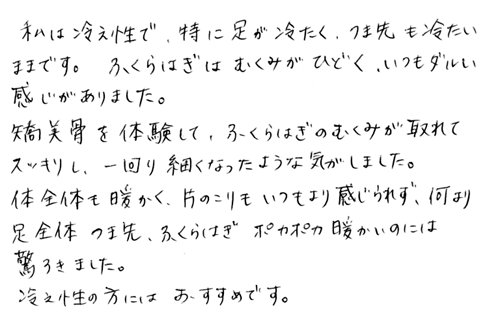 私は冷え性で、特に足が冷たく、つま先も冷たい
ままです。ふくらはぎはむくみがひどく、いつもダルい
感じがありました。
矯美骨を体験して、ふくらはぎのむくみが取れて
スッキリし、一回り細くなったような気がしました。
体全体も暖かく、片のこりもいつもより感じられず、何より
足全体つま先、ふくらはぎポカポカ暖かいのには
驚ろきました。
冷え性の方にはおすすめです。